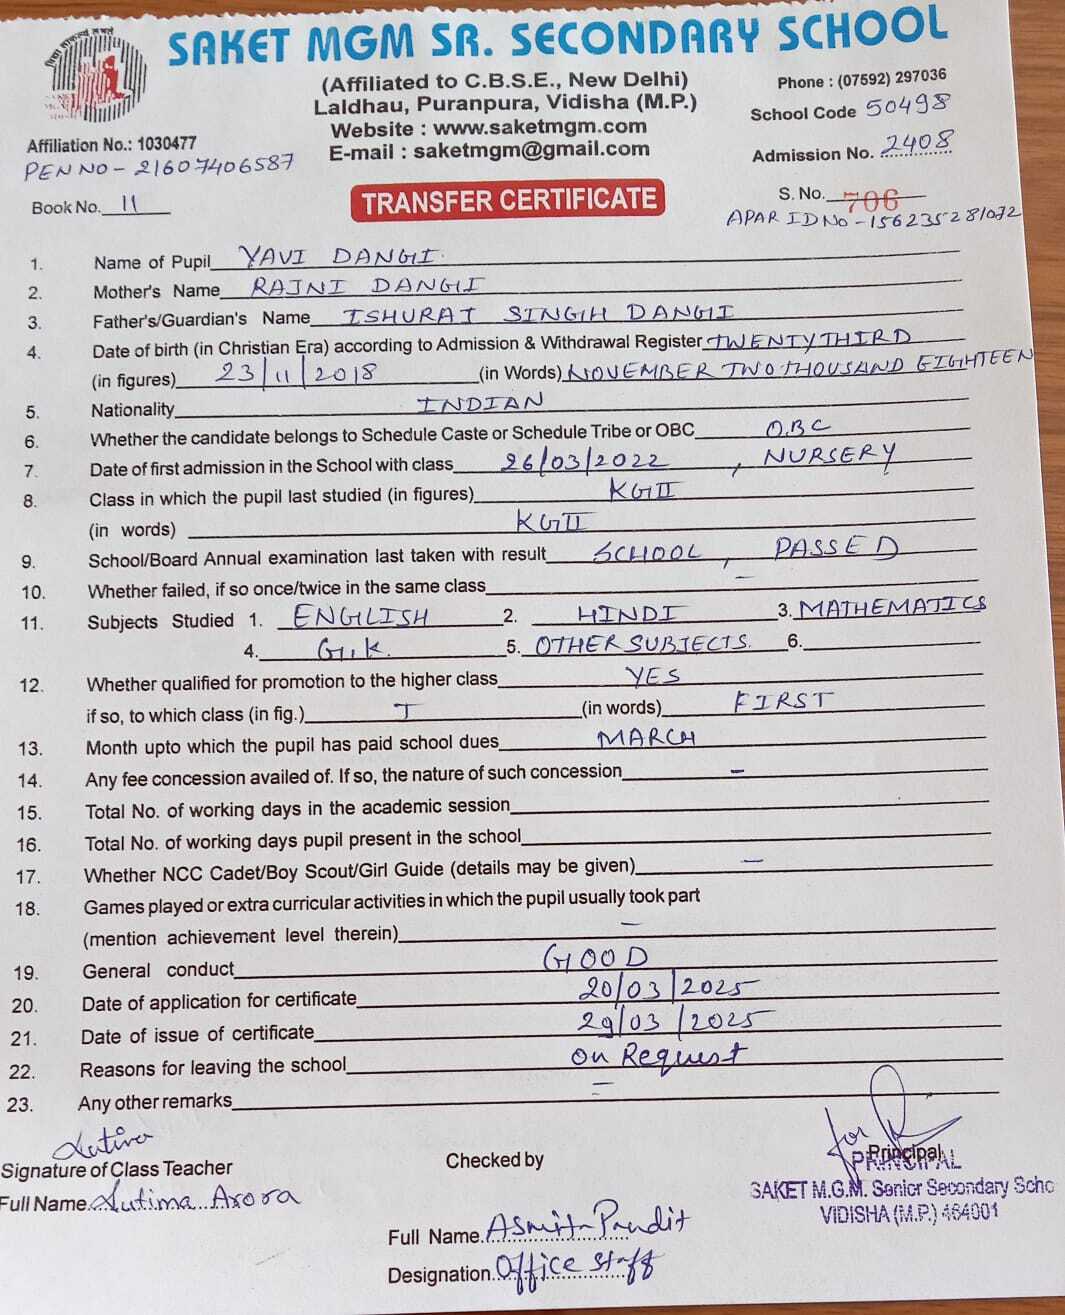 SAKET MGM SR. SECONDARY SCHOOL
(Affiliated to C.B.S.E., New Delhi)
Laldhau, Puranpura, Vidisha (M.P.)
Website : www.saketmgm.com
E-mail : saketmgm@gmail.com
Phone : (07592) 297036
School Code 50498
Admission No. 2408
Affiliation No.: 1030477
PEN NO - 21607406587
Book No. 11
TRANSFER CERTIFICATE
S. No. 706
APAR ID No - 156235281072
1. Name of Pupil YAVI DANGI.
2. Mother's Name RAJNI DANGI
3. Father's/Guardian's Name ISHURAJ SINGH DANGI
4. Date of birth (in Christian Era) according to Admission & Withdrawal Register TWENTY THIRD
(in figures) 23/11/2018 (in Words) NOVEMBER TWO THOUSAND EIGHTEEN
5. Nationality INDIAN
6. Whether the candidate belongs to Schedule Caste or Schedule Tribe or OBC OBC
7. Date of first admission in the School with class 26/03/2022, NURSERY
8. Class in which the pupil last studied (in figures) KG II
(in words) KG II
9. School/Board Annual examination last taken with result SCHOOL, PASSED
10. Whether failed, if so once/twice in the same class -
11. Subjects Studied 1. ENGLISH 2. HINDI 3. MATHEMATICS
4. G.K. 5. OTHER SUBJECTS. 6.
12. Whether qualified for promotion to the higher class YES
if so, to which class (in fig.) I (in words) FIRST
13. Month upto which the pupil has paid school dues MARCH
14. Any fee concession availed of. If so, the nature of such concession -
15. Total No. of working days in the academic session
16. Total No. of working days pupil present in the school
17. Whether NCC Cadet/Boy Scout/Girl Guide (details may be given) -
18. Games played or extra curricular activities in which the pupil usually took part
(mention achievement level therein) -
19. General conduct GOOD
20. Date of application for certificate 20/03/2025
21. Date of issue of certificate 29/03/2025
22. Reasons for leaving the school on Request
23. Any other remarks =
Signature of Class Teacher
Full Name Lutima Arora
Checked by
Full Name Asmit Pandit
Designation Office Staff
for
Principal
PRINCIPAL
SAKET M.G.M. Senior Secondary Scho
VIDISHA (M.P.) 464001